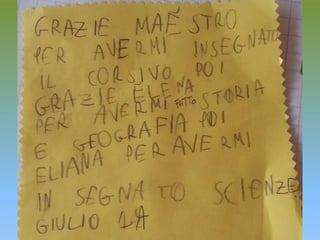 GRAZIE MAESTRO
PER AVERMI INSEGNATO
IL CORSIVO POI
GRAZIE ELENA
PER AVERMI FATTO STORIA
E GEOGRAFIA POI
ELIANA PER AVERMI
IN SEGNATO SCIENZE
GIULIO 1A